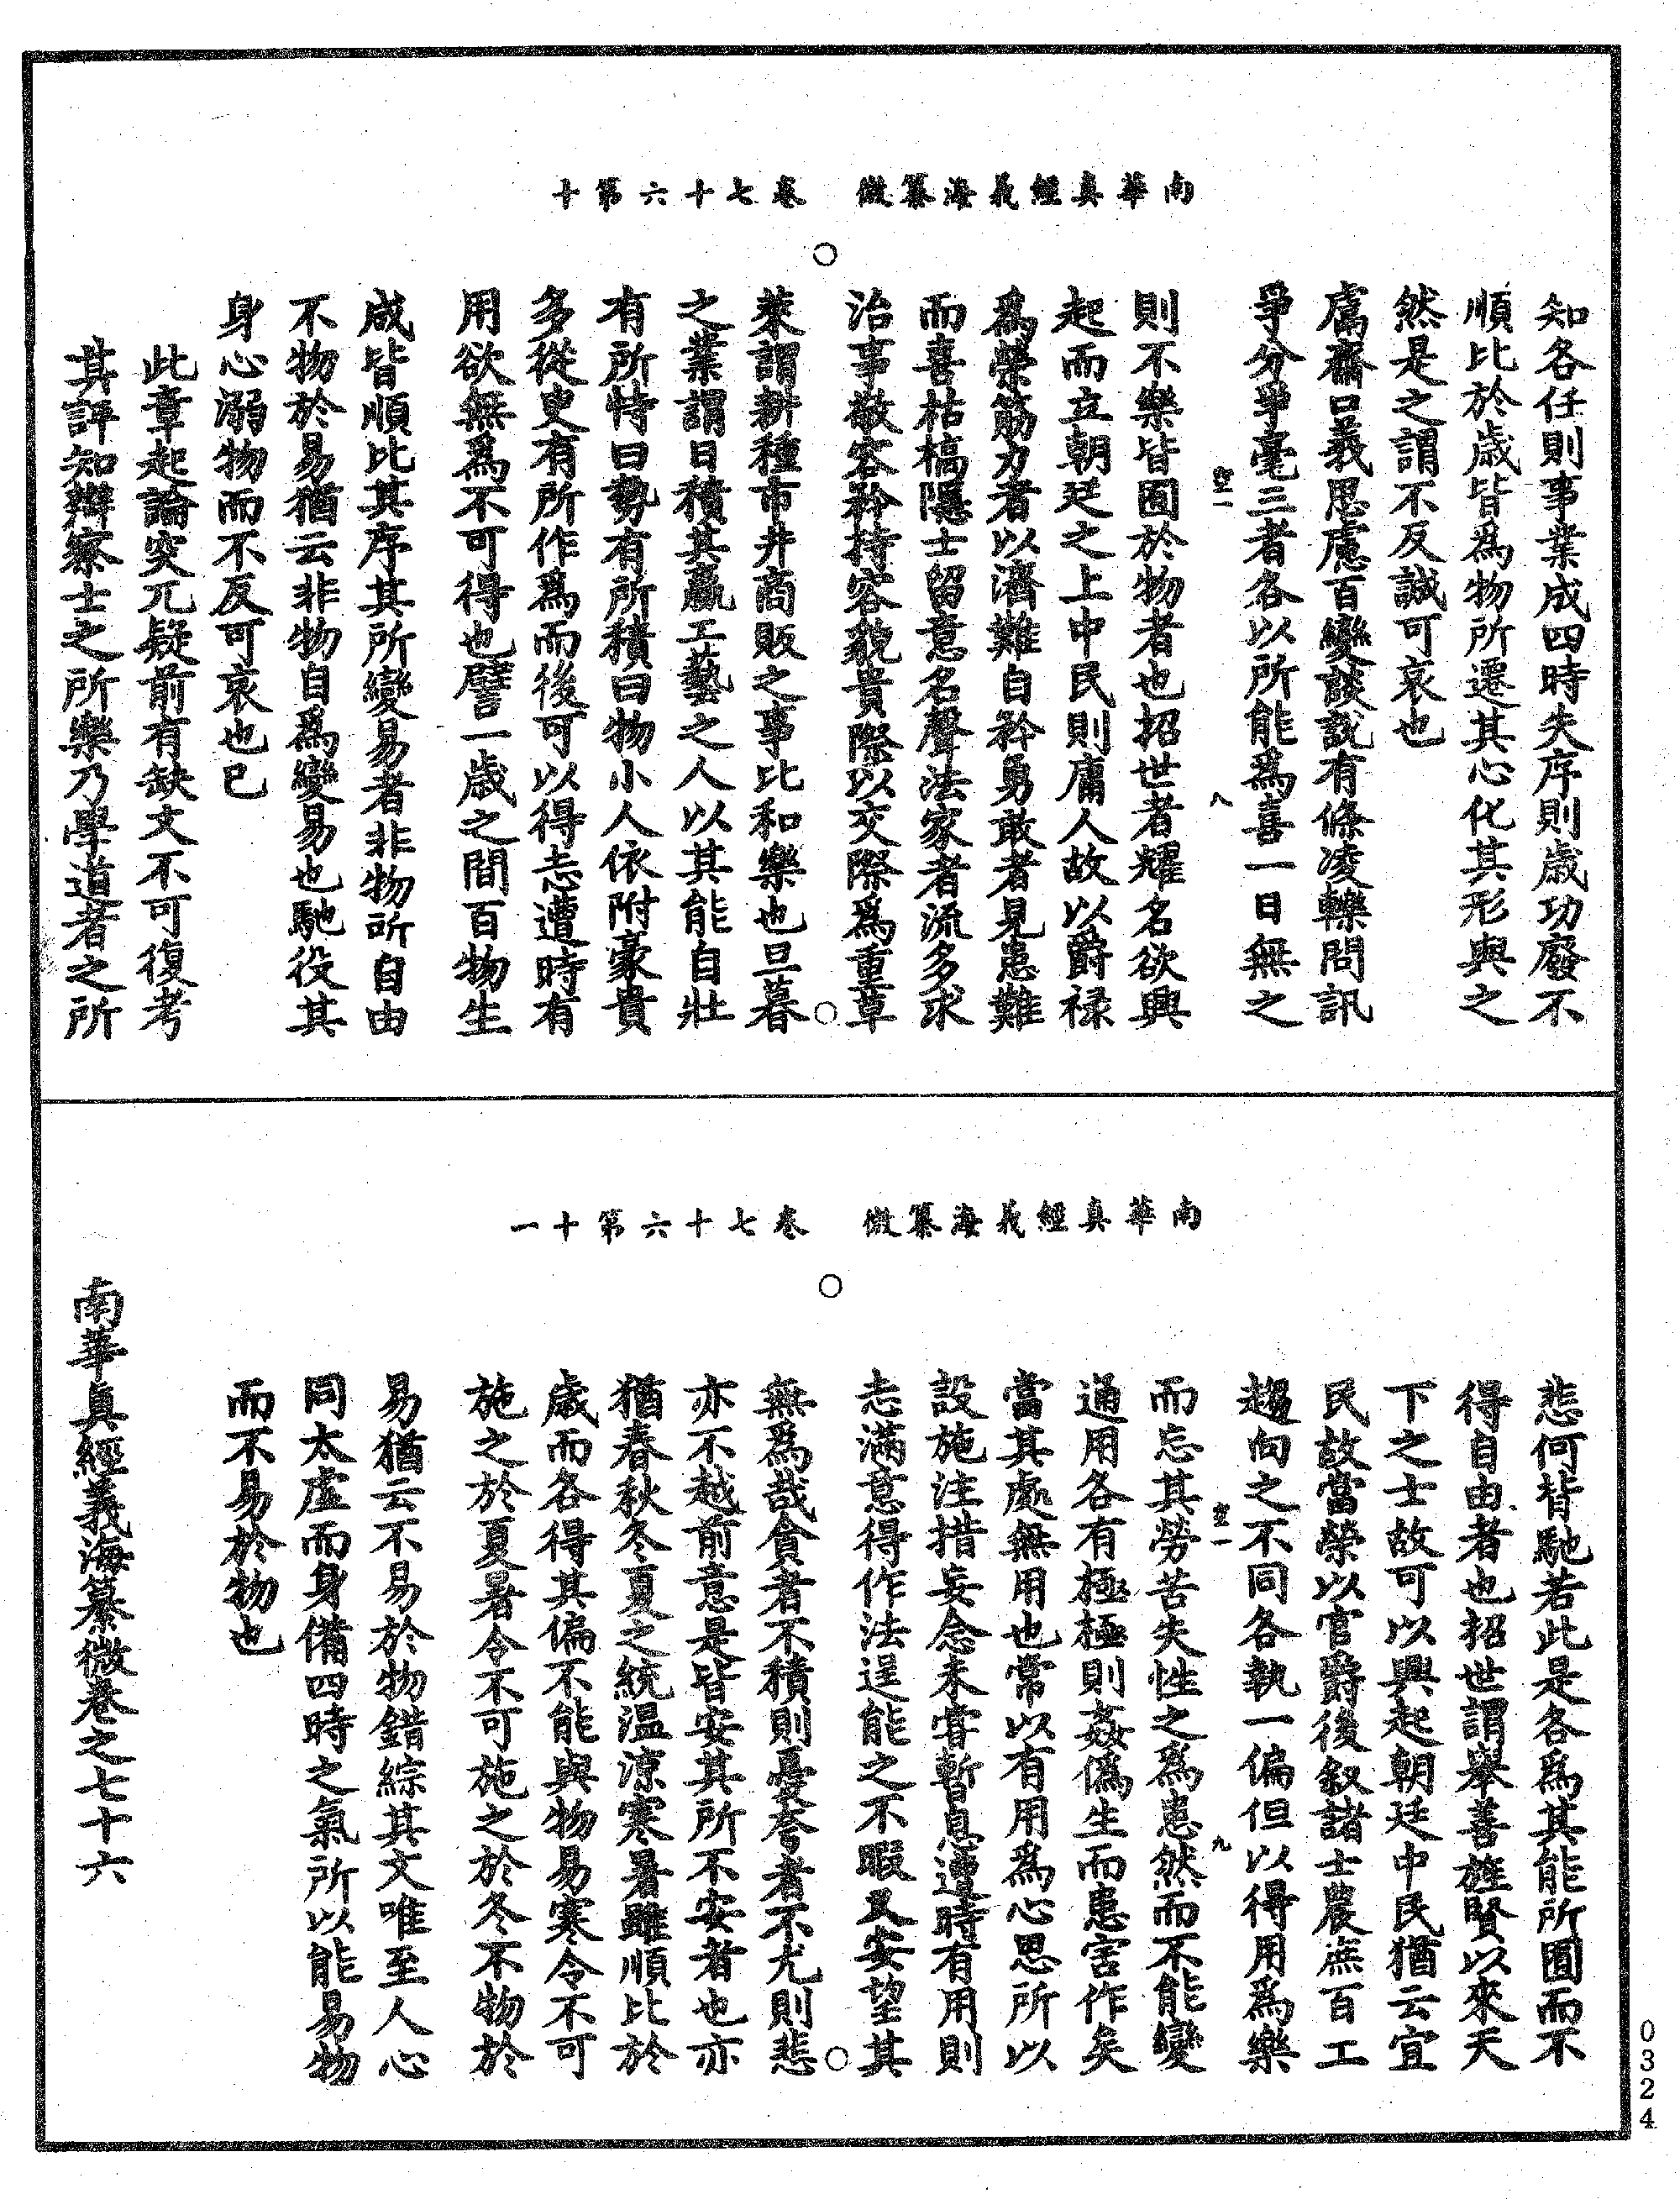 南華真經義海纂微　卷七十六第十
知各任則事業成四時失序則歲功廢不
順比於歲皆爲物所遷其心化其形與之
然是之謂不反誠可哀也
鬳齋口義思慮百變談說有條凌轢問訊
爭分爭毫三者各以所能爲喜一日無之
則不樂皆囿於物者也招世者耀名欲興
起而立朝廷之上中民則庸人故以爵禄
爲榮筋力者以濟難自矜勇敢者見患難
而喜枯槁隱士留意名聲法家者流多求
治事敬容矜持容貌貴際以交際爲重草
萊謂耕種市井商販之事比和樂也旦暮
之業謂日積其贏工藝之人以其能自壯
有所恃曰勢有所積曰物小人依附豪貴
多從吏有所作爲而後可以得志遭時有
用欲無爲不可得也譬一歲之間百物生
成皆順比其序其所變易者非物所自由
不物於易猶云非物自爲變易也馳役其
身心溺物而不反可哀也已
此章起論突兀疑前有缺文不可復考
其評知辯察士之所樂乃學道者之所
南華真經義海纂微　卷七十六第十一
悲何朁馳若此是各爲其能所囿而不
得自由者也招世謂舉善旌賢以來天
下之士故可以興起朝廷中民猶云宜
民故當榮以官爵後叙諸士農庶百工
趨向之不同各執一偏但以得用爲樂
而忘其勞苦失性之爲患然而不能變
通用各有極極則姦僞生而患害作矣
當其處無用也常以有用爲心思所以
設施注措妄念未嘗暫息遭時有用則
志滿意得作法逞能之不暇又安望其
無爲哉貪者不積則憂夸者不尤則悲
亦不越前意是皆安其所不安者也亦
猶春秋冬夏之統温涼寒暑雖順比於
歲而各得其偏不能與物易寒令不可
施之於夏暑令不可施之於冬不物於
易猶云不易於物錯綜其文唯至人心
同太虛而身備四時之氣所以能易物
而不易於物也
南華眞經義海纂微卷之七十六
0324